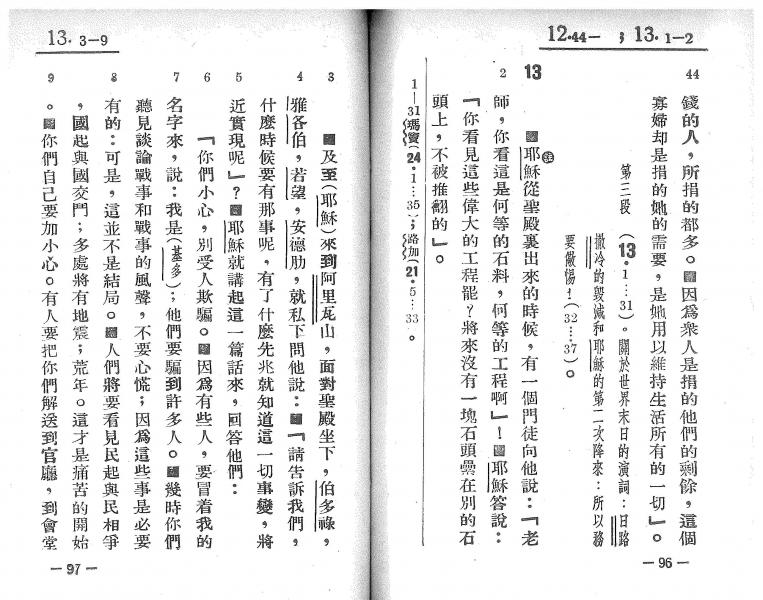 12.44— ; 13. 1—2
44
錢的人，所捐的都多。因爲衆人是捐的他們的剩餘，這個
寡婦却是捐的她的需要，是她用以維持生活所有的一切」。
第三段 （13・1…31）。關於世界末日的演詞：日路
撒冷的毀滅和耶穌的第二次降來：所以務
要儆惕！（32…37）。
13
耶穌從聖殿裏出來的時候，有一個門徒向他說：「老
2
師，你看這是何等的石料，何等的工程啊」！耶穌答說：
「你看見這些偉大的工程罷？將來沒有一塊石頭纍在別的石
頭上，不被推翻的」。
1—31瑪竇（24・1…35）；路加（21・5…33。
—96—
13. 3—9
3
及至（耶穌）來到阿里瓦山，面對聖殿坐下，伯多祿，
4
雅各伯，若望，安德肋，就私下問他說：「請告訴我們，
什麼時候要有那事呢，有了什麼先兆就知道這一切事變，將
5
近實現呢」？耶穌就講起這一篇話來，回答他們：
6
「你們小心，別受人欺騙。因爲有些人，要冒着我的
7
名字來，說：我是（基多）；他們要騙到許多人。幾時你們
聽見談論戰事和戰事的風聲，不要心慌；因爲這些事是必要
8
有的：可是，這並不是結局。人們將要看見民起與民相爭
，國起與國交鬥；多處將有地震；荒年。這才是痛苦的開始
9
。你們自己要加小心。有人要把你們解送到官廳，到會堂
—97—